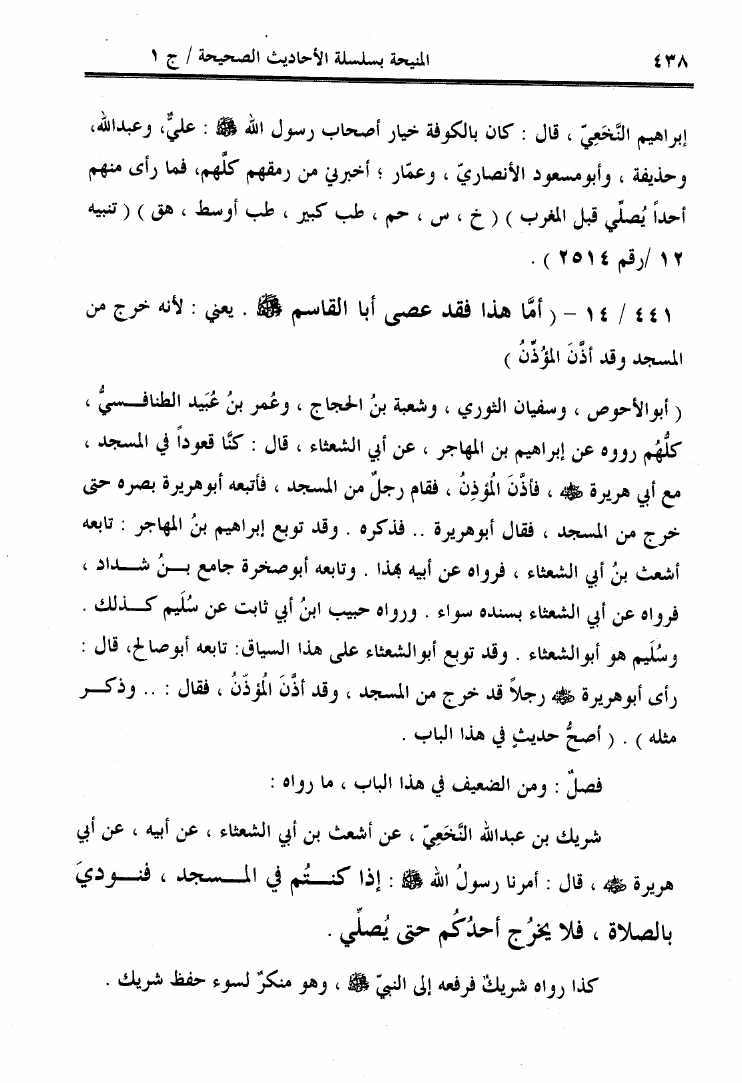 ٤٣٨ المنيحة بسلسلة الأحاديث الصحيحة / ج ١
إبراهيم النَّخَعِيّ ، قال : كان بالكوفة خيار أصحاب رسول الله ﷺ : عليٌّ، وعبدالله،
وحذيفة ، وأبومسعود الأنصاريّ ، وعمّار ؛ أخبرني من رمقهم كلَّهم، فما رأى منهم
أحداً يُصلِّي قبل المغرب ) ( خ ، س ، حم ، طب كبير ، طب أوسط ، هق ) ( تنبيه
١٢ /رقم ٢٥١٤ ) .
٤٤١ / ١٤ – ( أمَّا هذا فقد عصى أبا القاسم ﷺ . يعني : لأنه خرج من
المسجد وقد أذَّنَ المؤذِّنُ )
( أبوالأحوص ، وسفيان الثوري ، وشعبة بنُ الحجاج ، وعُمر بنُ عُبَيد الطنافسيُّ ،
كلُّهُم رووه عن إبراهيم بن المهاجر ، عن أبي الشعثاء ، قال : كنَّا قعوداً في المسجد ،
مع أبي هريرة ﷺ ، فأذَّنَ المُؤذِنُ ، فقام رجلٌ من المسجد ، فأتبعه أبوهريرة بصره حتى
خرج من المسجد ، فقال أبوهريرة .. فذكره . وقد توبع إبراهيم بنُ المهاجر : تابعه
أشعث بنُ أبي الشعثاء ، فرواه عن أبيه بهذا . وتابعه أبوصخرة جامع بنُ شداد ،
فرواه عن أبي الشعثاء بسنده سواء . ورواه حبيب ابنُ أبي ثابت عن سُلَيم كذلك .
وسُلَيم هو أبوالشعثاء . وقد توبع أبوالشعثاء على هذا السياق: تابعه أبوصالح، قال :
رأى أبوهريرة ﷺ رجلاً قد خرج من المسجد ، وقد أذَّنَ المُؤذّنُ ، فقال : .. وذكر
مثله ) . ( أصحُّ حديثٍ في هذا الباب .
فصلٌ : ومن الضعيف في هذا الباب ، ما رواه :
شريك بن عبدالله النَّخَعِيّ ، عن أشعث بن أبي الشعثاء ، عن أبيه ، عن أبي
هريرة ﷺ ، قال : أمرنا رسولُ الله ﷺ : إذا كنتُم في المسجد ، فنوديَ
بالصلاة ، فلا يخرُج أحدُكُم حتى يُصلِّي .
كذا رواه شريكٌ فرفعه إلى النبيّ ﷺ ، وهو منكرٌ لسوء حفظ شريك .